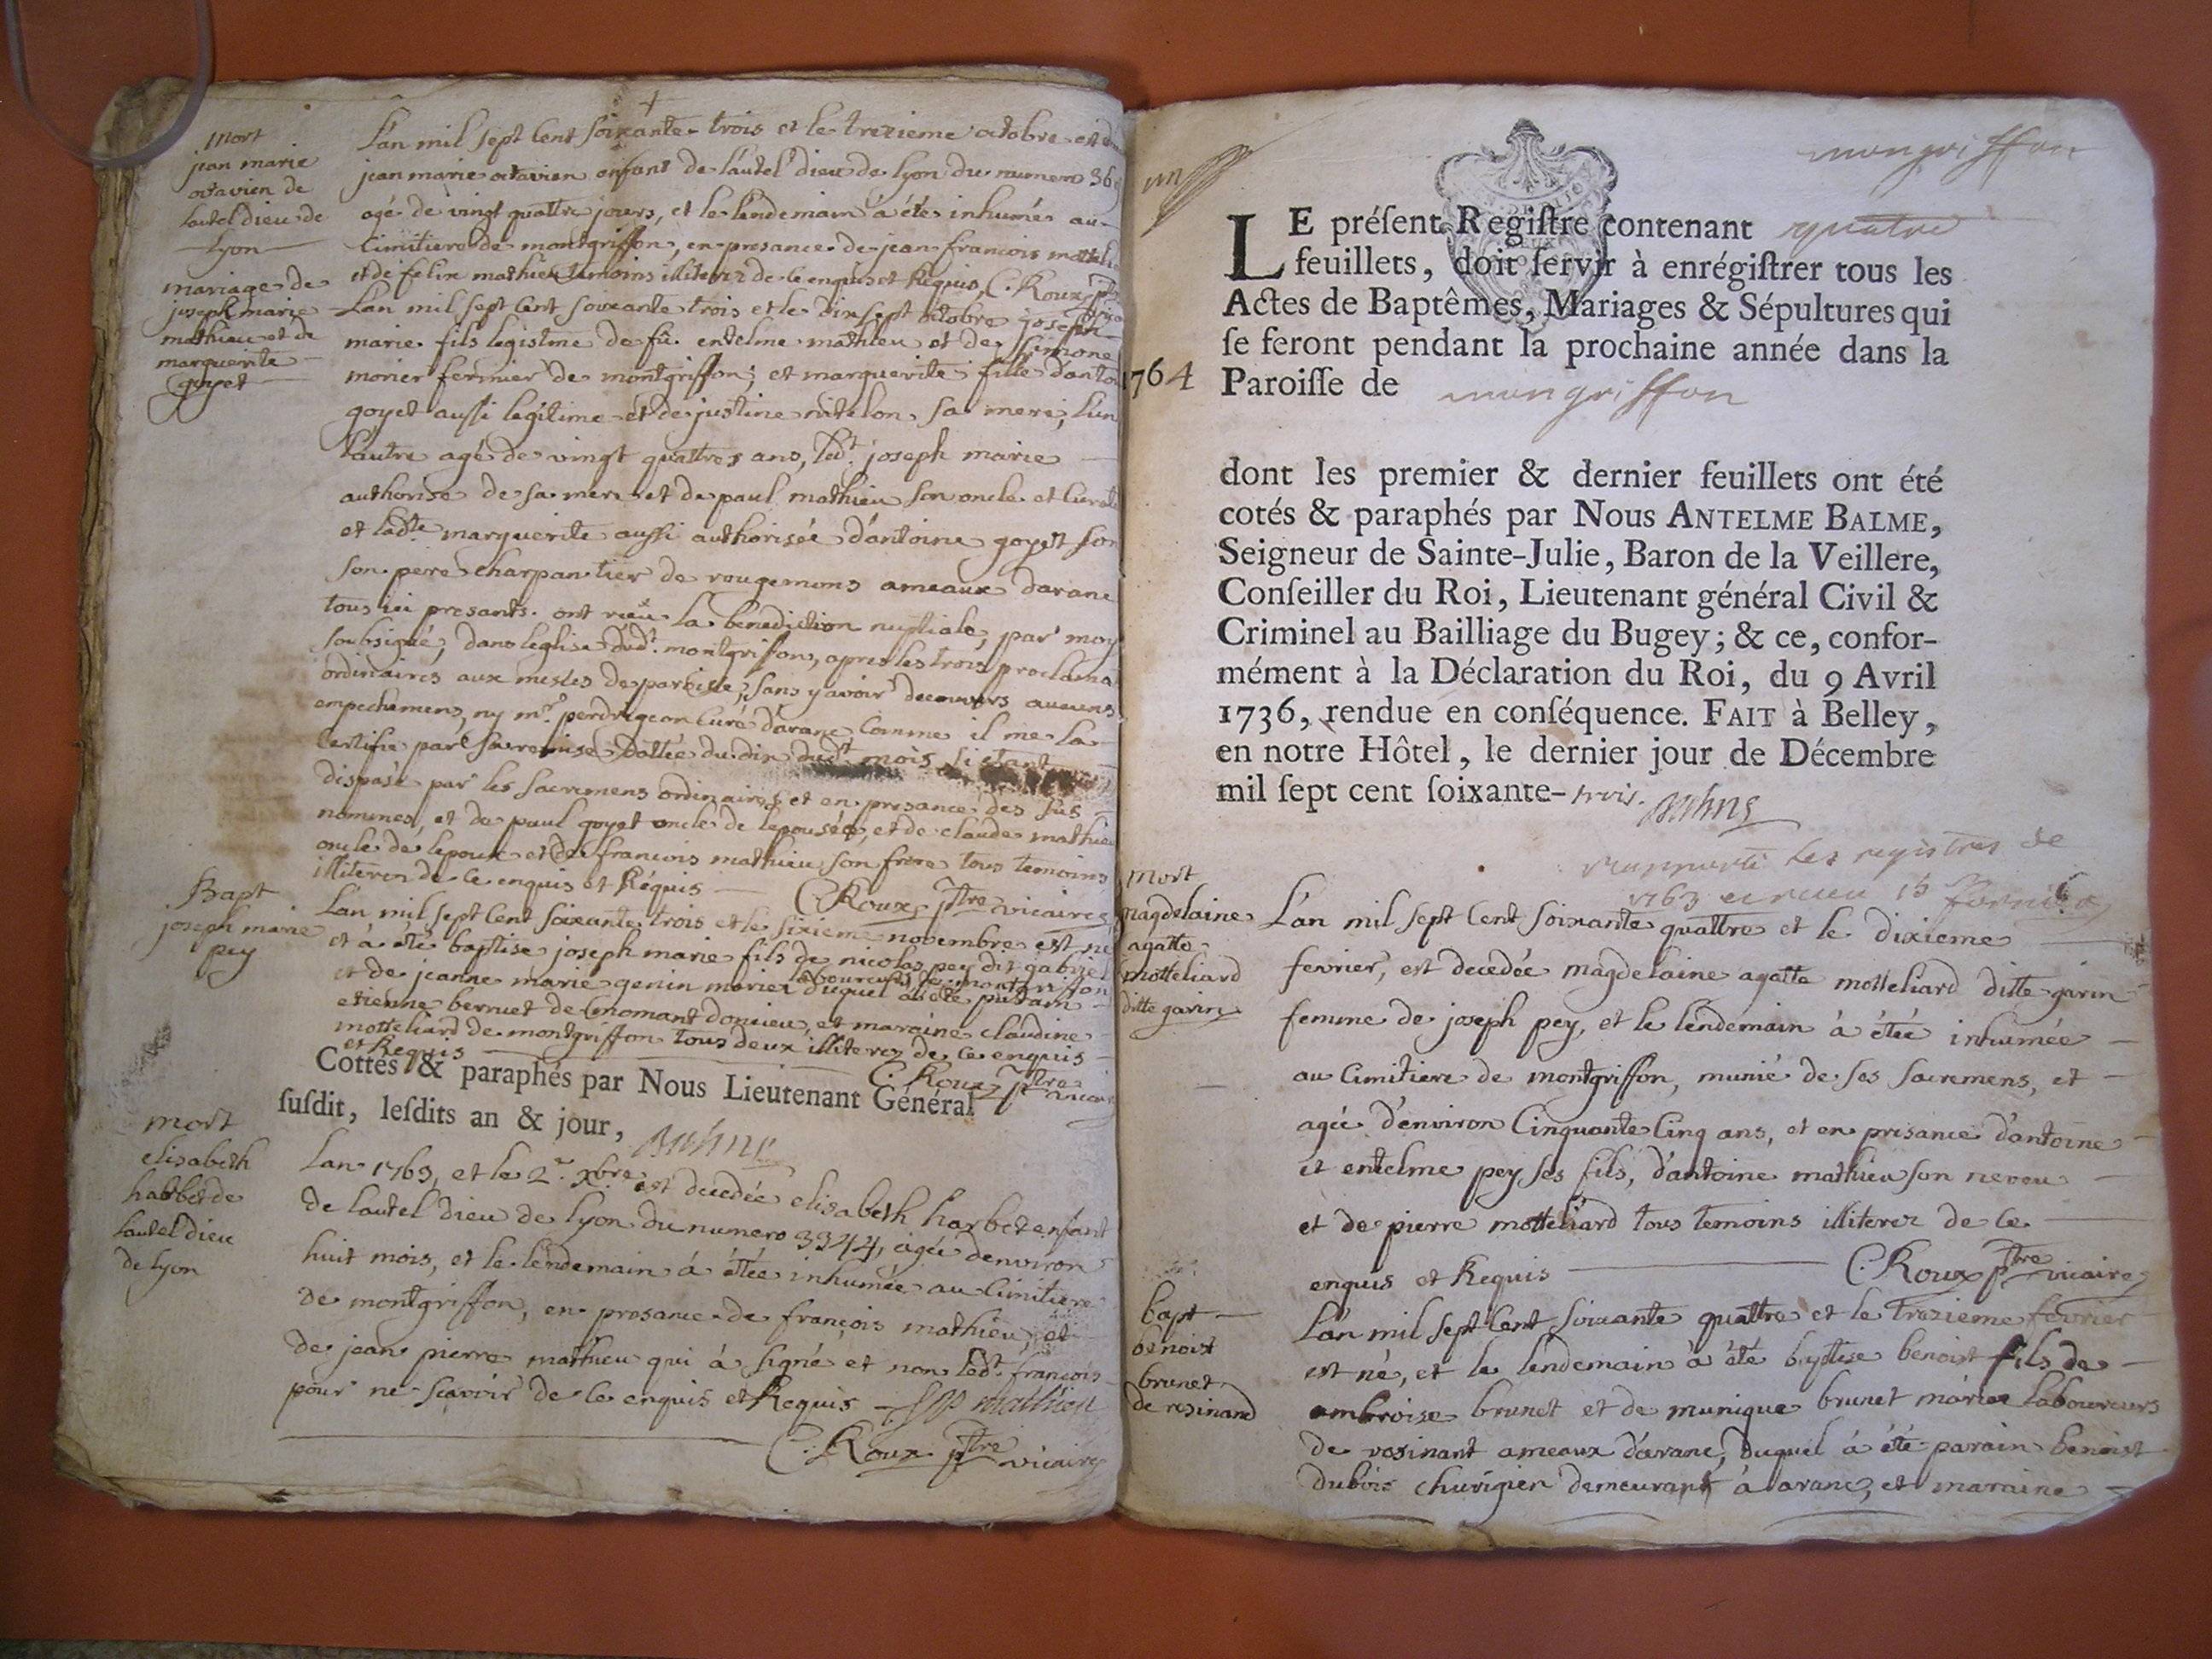 mort
jean marie
octavien de
lautel dieu de
Lyon
L'an mil sept Cent soixante trois et le trezieme octobre est
jean marie octavien enfant de l'autel dieu de lyon du numero 36
agé de vingt quattre jours, et le lendemain a étée inhumé au
Cimitiere de montgriffon, en presance de jean francois
et de felix mathieu temoins illiterez de ce enquis et Requis, C. Roux ptre
mariage de
joseph marie
mathieu et de
marguerite
goyet
L'an mil sept Cent soixante trois et le dix sept octobre joseph
marie fils legistme de fû entelme mathieu et de simone
morier fermier de montgriffon; et marguerite fille d'anto
goyet aussi legitime et de justine sa mere, l'un
l'autre agé de vingt quattres ans, led.t joseph marie
authorisé de sa mere et de paul mathieu son oncle et
et lad.te marguerite aussi authorisée d'antoine goyet son
son pere charpantier de rougemons ameaux darane
tous ici presants ont reçu la benediction nuptiale, par moy
soubsigné, dans leglise dud.t montgriffons, apres les trois proclama
ordinaires aux messes de paroisse, sans y avoir decouvers aucuns
empechemens, ny m.r perdrigeon Curé d'arane, Comme il me la
Certifié par sa remise dattée du dix dud.t mois, si étant
disposé par les sacremens ordinaires et en presance des sus
nommes, et de paul goyet oncle de lepousée, et de claude mathieu
oncle de lepoux et de francois mathieu son frere tous temoins
illiterez de ce enquis et Réquis C. Roux, ptre vicaire
Bapt
joseph marie
pey
L'an mil sept Cent soixante trois et le sixieme novembre est né
et à été baptise joseph marie fils de nicolas pey dit gabriel
et de jeanne marie genin mariez laboureurs de montgriffon
duquel a été parain
etienne bernet de Cenomant doncieu, et maraine claudine
motteliard de montgriffon tous deux illiterez de ce enquis
et Requis C. Roux ptre vicaire
Cottés & paraphés par Nous Lieutenant Général
susdit, lesdits an & jour,
mort
elisabeth
harbet de
lautel dieu
de lyon
Lan 1763, et le 2.e Xbre est decedée elisabeth harbet enfant
de lautel dieu de lyon du numero 3344, agée denviron
huit mois, et le lendemain à étée inhumée au Cimitiere
de montgriffon, en presance de françois mathieu, et
de jean pierre mathieu qui à signé et non led.t françois
pour ne sçavoir de ce enquis et Requis mathieu
C. Roux ptre vicaire
un
mongriffon
LE préſent Regiſtre contenant quatre
feuillets, doit ſervir à enrégiſtrer tous les
Actes de Baptêmes, Mariages & Sépultures qui
ſe feront pendant la prochaine année dans la
1764 Paroiſſe de mongriffon
dont les premier & dernier feuillets ont été
cotés & paraphés par Nous ANTELME BALME,
Seigneur de Sainte-Julie, Baron de la Veillere,
Conſeiller du Roi, Lieutenant général Civil &
Criminel au Bailliage du Bugey; & ce, confor-
mément à la Déclaration du Roi, du 9 Avril
1736, rendue en conſéquence. FAIT à Belley,
en notre Hôtel, le dernier jour de Décembre
mil ſept cent ſoixante-trois.
rapporté les registres de
1763
mort
magdelaine
agatte
motteliard
ditte garin
L'an mil sept Cent soixante quattre et le dixieme
fevrier, est decedée magdelaine agatte motteliard ditte garin
femme de joseph pey, et le lendemain à étée inhumée
au Cimitiere de montgriffon, munié de ses sacremens, et
agée d'environ Cinquante Cinq ans, et en presance d'antoine
et entelme pey, ses fils, d'antoine mathieu son neveu
et de pierre motteliard tous temoins illiterez de ce
enquis et Requis C. Roux ptre vicaire
bapt
benoist
brunet
de resinand
L'an mil sept Cent soixante quattre et le trezieme fevrier
est né, et le lendemain à été baptise benoist fils de
ambroise brunet et de munique brunet mariez laboureurs
de rosinant ameaux d'arane, duquel à été parain benoist
dubois chirigien demeurant à arane, et maraine